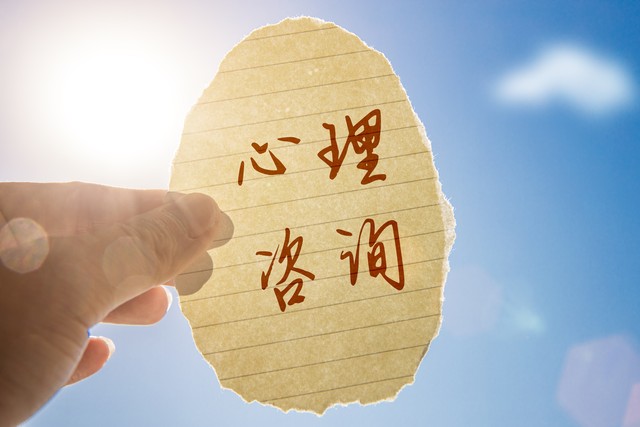 心理
咨询